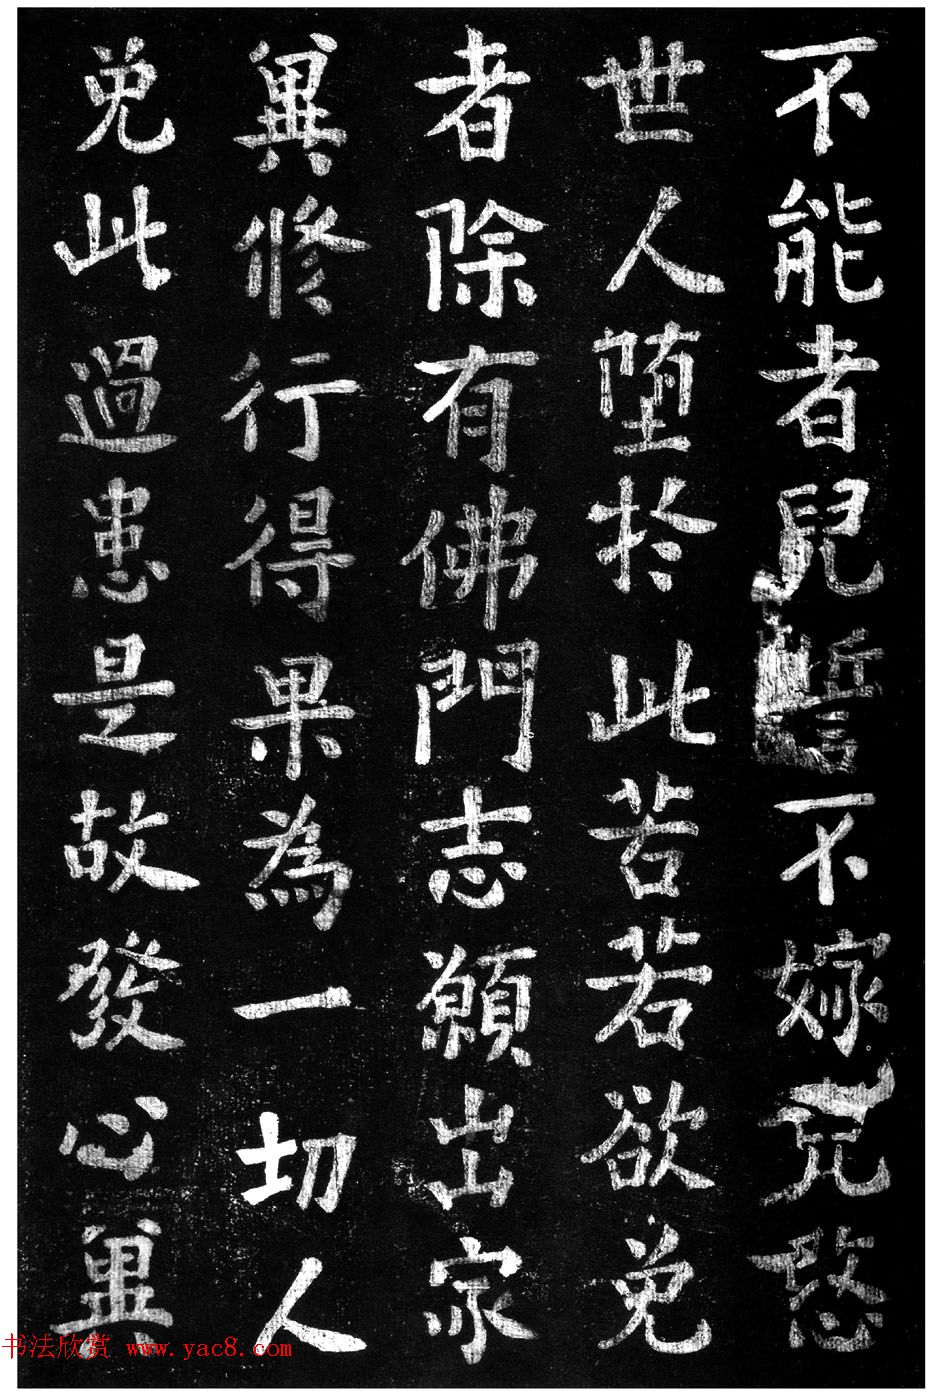 不能者兒誓不嫁兒愍
世人墮於此苦若欲免
者除有佛門志願出家
異修行得果為一切人
免此過患是故發心異
书法欣赏 www.yac8.com